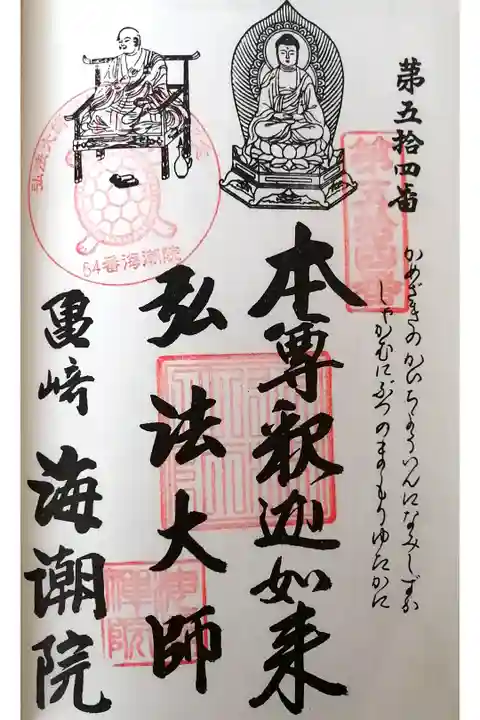 第五拾四番
かめざきのかいちょういんになみしずか
しゃかむにぶつのまもりゆたかに
本尊釈迦如来
弘法大師
亀﨑 海潮院
第五拾四番
弘法大
54番海潮院